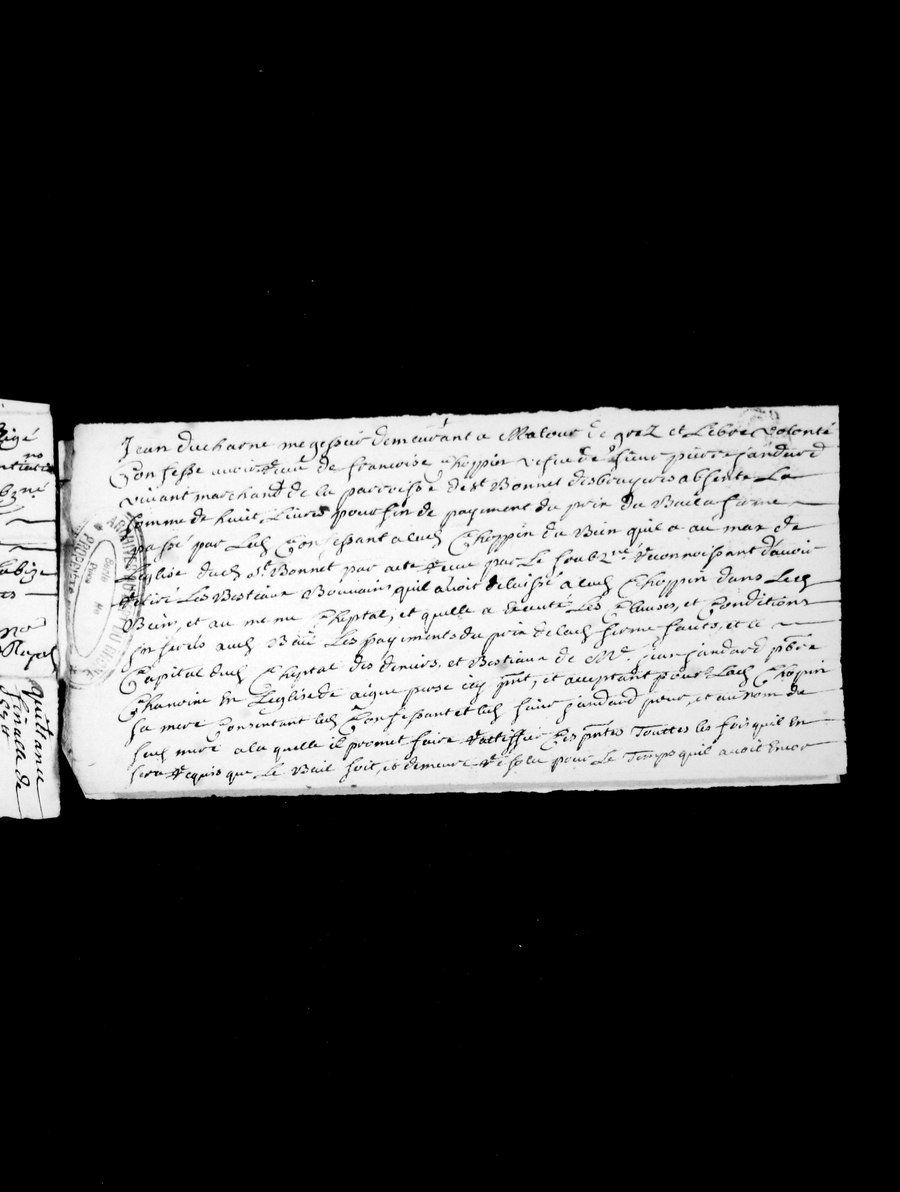 Jean ducharne megessier demeurant a de grez et Libre volonté
Confesse avoir receu de francoise Choppin vefve de sieur pierre Jandard
vivant marchand de la parroisse de St Bonnet desbruyeres absente La
somme de huit Livres pour fin de payement du prix du Bail a ferme
passé par Led Confessant a lad Choppin du Bien quil a au mas de
Leglise dud St Bonnet par acte receu par Le soubzné reconnoissant davoir
retiré Les Bestiaux Bouvains quil avoit delaissé a lad Choppin dans Led
Bien, et au mesme Cheptal, et quelle a executé Les Clauses, et Conditions
aud Bail Les payements du prix de lad ferme faits, et le
Capital dud Cheptal des deniers, et Bestiaux de Mre Jean Jandard pbre
Chanoine en Leglise de aigue perse icy pnt, et acceptant pour Lad Choppin
sa mere Consentant led Confessant et led sieur Jandard pour, et au nom de
sad mere a la quelle il promet faire rattiffier Ces pntes Touttes les fois quil en
sera requis que Le Bail soit, et demeure resolu pour Le Temps quil avoit encor
Quittance
finalle de
ARCHIVES DU RHONE
PROPRIETE